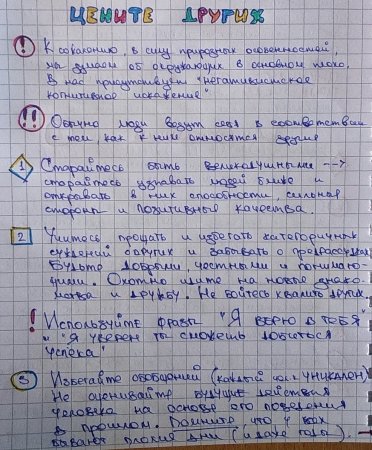 ЦЕНИТЕ ДРУГИХ
! К сожалению, в силу природных особенностей,
мы думаем об окружающих в основном плохо.
В нас присутствует "негативистское
когнитивное искажение"
!! Обычно люди ведут себя в соответствии
с тем, как к ним относятся другие
1 Старайтесь быть великодушными -->
старайтесь узнавать людей ближе и
открывать в них способности, сильные
стороны и позитивные качества.
2 Учитесь прощать и избегать категоричных
суждений о других и забывать о предрассудках
Будьте добрыми, честными и понимаю-
щими. Охотно идите на новые знако-
мства и дружбу. Не бойтесь хвалить других.
! Используйте фразы "Я верю в тебя"
и "Я уверен ты сможешь добиться
успеха"
3 Избегайте обобщений (каждый чел-к уникален)
Не оценивайте будущие действия
человека на основе его поведения
в прошлом. Помните, что у всех
бывают плохие дни (и даже годы).